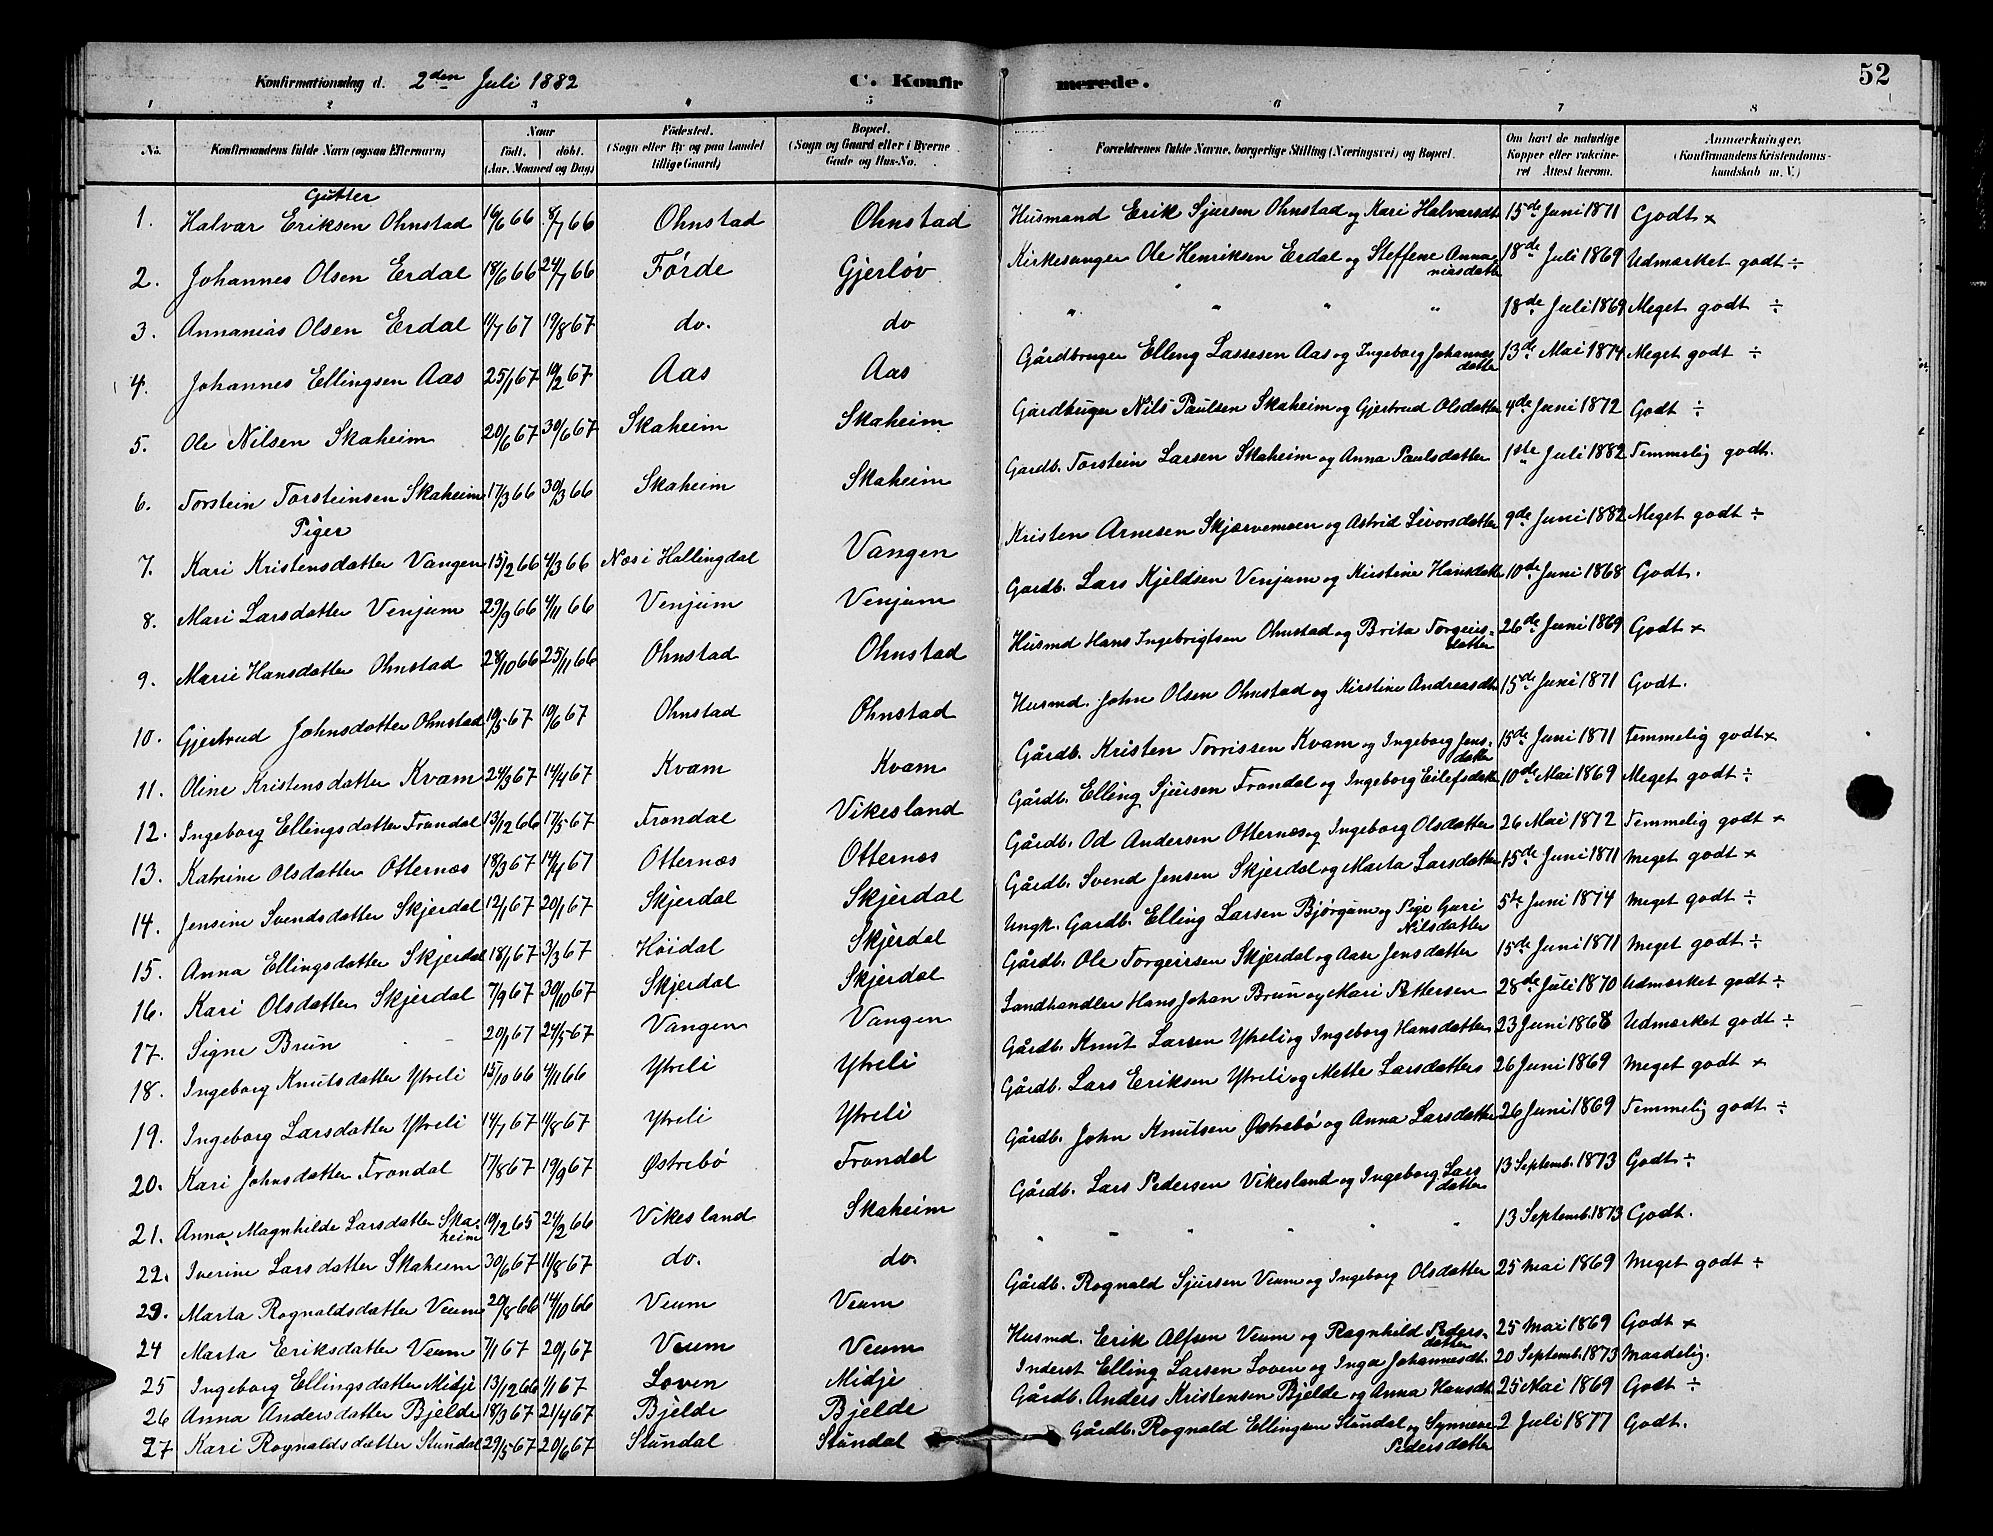 52
Konfirmationsdag d. 2den Juli 1882 C. Konfirmerede.
1 2 3 4 5 6 7 8
No. Konfirmandens fulde Navn (ogsaa Efternavn) Naar født. døbt. (Aar, Maaned og Dag) Fødested. (Sogn eller By og paa Landet tillige Gaard) Bopæl. (Sogn og Gaard eller i Byerne Gade og Hus-No. Forældrenes fulde Navne, borgerlige Stilling (Næringsvei) og Bopæl. Om havt de naturlige Kopper eller vakcineret Attest herom. Anmærkninger. (Konfirmandens Kristendomskundskab m. V.)
Gutter
1. Halvar Eriksen Ohnstad 16/6 66 8/7 66 Ohnstad Ohnstad Husmand Erik Sjursen Ohnstad og Kari Halvarsdt 15de Juni 1871 Godt ×
2. Johannes Olsen Erdal 18/6 66 24/7 66 Førde Gjerløv Kirkesanger Ole Henriksen Erdal og Steffene Annaniasdatter 18de Juli 1869 Udmærket godt ÷
3. Annanias Olsen Erdal 11/7 67 19/8 67 do. do " " " " 18de Juli 1869 Meget godt ÷
4. Johannes Ellingsen Aas 25/1 67 10/2 67 Aas Aas Gårdbruger Elling Lassesen Aas og Ingeborg Johannesdatter 13de Mai 1874 Meget godt ÷
5. Ole Nilsen Skaheim 20/6 67 30/6 67 Skaheim Skaheim Gårdbuger Nils Paulsen Skaheim og Gjertrud Olsdatter 4de Juni 1872 Godt ÷
6. Torstein Torsteinsen Skaheim 17/3 66 30/3 66 Skaheim Skaheim Gardb. Torstein Larsen Skaheim og Anna Paulsdatter 1ste Juli 1882 Temmelig godt.
Piger
7. Kari Kristensdatter Vangen 15/2 66 4/3 66 Næs i Hallingdal Vangen Kristen Arnesen Skjærvemoen og Astrid Sivorsdatter 9de Juni 1882 Meget godt ÷
8. Mari Larsdatter Venjum 29/9 66 4/11 66 Venjum Venjum Gardb. Lars Kjeldsen Venjum og Kirstine Hansdatter 10de Juni 1868 Godt.
9. Marie Hansdatter Ohnstad 28/10 66 25/11 66 Ohnstad Ohnstad Husmd Hans Ingebrigtsen Ohnstad og Brita Torgeirsdatter 26de Juni 1869 Godt ×
10. Gjertrud Johnsdatter Ohnstad 19/5 67 10/6 67 Ohnstad Ohnstad Husmd. John Olsen Ohnstad og Kirstine Andreasdt. 15de Juni 1871 Godt.
11. Oline Kristensdatter Kvam 24/3 67 14/4 67 Kvam Kvam Gårdb. Kristen Torrissen Kvam og Ingeborg Jensdatter 15de Juni 1871 Temmelig godt ×
12. Ingeborg Ellingsdatter Frondal 13/12 66 17/5 67 Frondal Vikesland Gårdb. Elling Sjursen Frondal og Ingeborg Eilefsdatter 10de Mai 1869 Meget godt ÷
13. Katrine Olsdatter Otternæs 18/3 67 14/4 67 Otternæs Otternæs Gårdb. Od Andersen Otternæs og Ingeborg Olsdatter 26 Mai 1872 Temmelig godt ×
14. Jensine Svendsdatter Skjerdal 12/1 67 20/1 67 Skjerdal Skjerdal Gårdb. Svend Jensen Skjerdal og Marta Larsdatter 15de Juni 1871 Meget godt ×
15. Anna Ellingsdatter Skjerdal 18/1 67 3/3 67 Høidal Skjerdal Ungk. Gardb. Elling Larsen Bjørgum og Pige Gari Nilsdatter 5te Juni 1874 Meget godt ÷
16. Kari Olsdatter Skjerdal 7/9 67 30/10 67 Skjerdal Skjerdal Gårdb. Ole Torgeirsen Skjerdal og Aase Jensdatter 15de Juni 1871 Meget godt ÷
17. Signe Brun 20/1 67 24/5 67 Vangen Vangen Landhandler Hans Johan Brun og Mari Pettersen 28de Juli 1870 Udmærket godt ÷
18. Ingeborg Knutsdatter Ytreli 15/10 66 4/11 66 Ytreli Ytreli Gårdb. Knut Larsen Ytreli og Ingeborg Hansdatter 23 Juni 1868 Udmærket godt ÷
19. Ingeborg Larsdatter Ytreli 14/7 67 11/8 67 Ytreli Ytreli Gårdb. Lars Eriksen Ytreli og Mette Larsdatters 26 Juni 1869 Meget godt ×
20. Kari Johnsdatter Frondal 17/8 67 19/9 67 Østrebø Frondal Gårdb. John Knutsen Østrebø og Anna Larsdatter 26 Juni 1869 Temmelig godt ÷
21. Anna Magnhilde Larsdatter Skaheim 19/12 65 24/2 66 Vikesland Skaheim Gårdb. Lars Pedersen Vikesland og Ingeborg Larsdatter 13 Septemb. 1873 Godt ÷
22. Iverine Larsdatter Skaheim 30/6 67 11/8 67 do. do. " " " " " 13 Septemb. 1873 Godt.
23. Marta Rognaldsdatter Veum 20/8 66 14/10 66 Veum Veum Gårdb. Rognald Sjursen Veum og Ingeborg Olsdatter 25 Mai 1869 Meget godt ÷
24 Marta Eriksdatter Veum 7/1 67 20/1 67 Veum Veum Husmd. Erik Alfsen Veum og Ragnhild Pedersdatter 25 Mai 1869 Godt ×
25 Ingeborg Ellingsdatter Midje 13/12 66 1/1 67 Loven Midje Inderst Elling Larsen Loven og Inga Johannesdt. 20 Septemb. 1873 Maadelig.
26 Anna Andersdatter Bjelde 18/3 67 21/4 67 Bjelde Bjelde Gårdb. Anders Kristensen Bjelde og Anna Hansdt 25 Mai 1869 Godt ÷
27 Kari Rognaldsdatter Stundal 29/5 67 20/6 67 Stundal Stundal Gårdb. Rognald Ellingsen Stundal og Synneve Pedersdatter 2 Juli 1877 Godt.